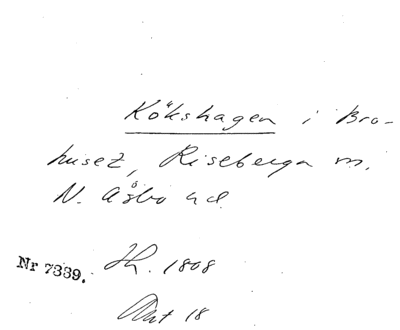 Kökshagen i Bro-
huset, Riseberga m.
N. Åsbo hd
Nr 7339. Th. 1808
Akt 18